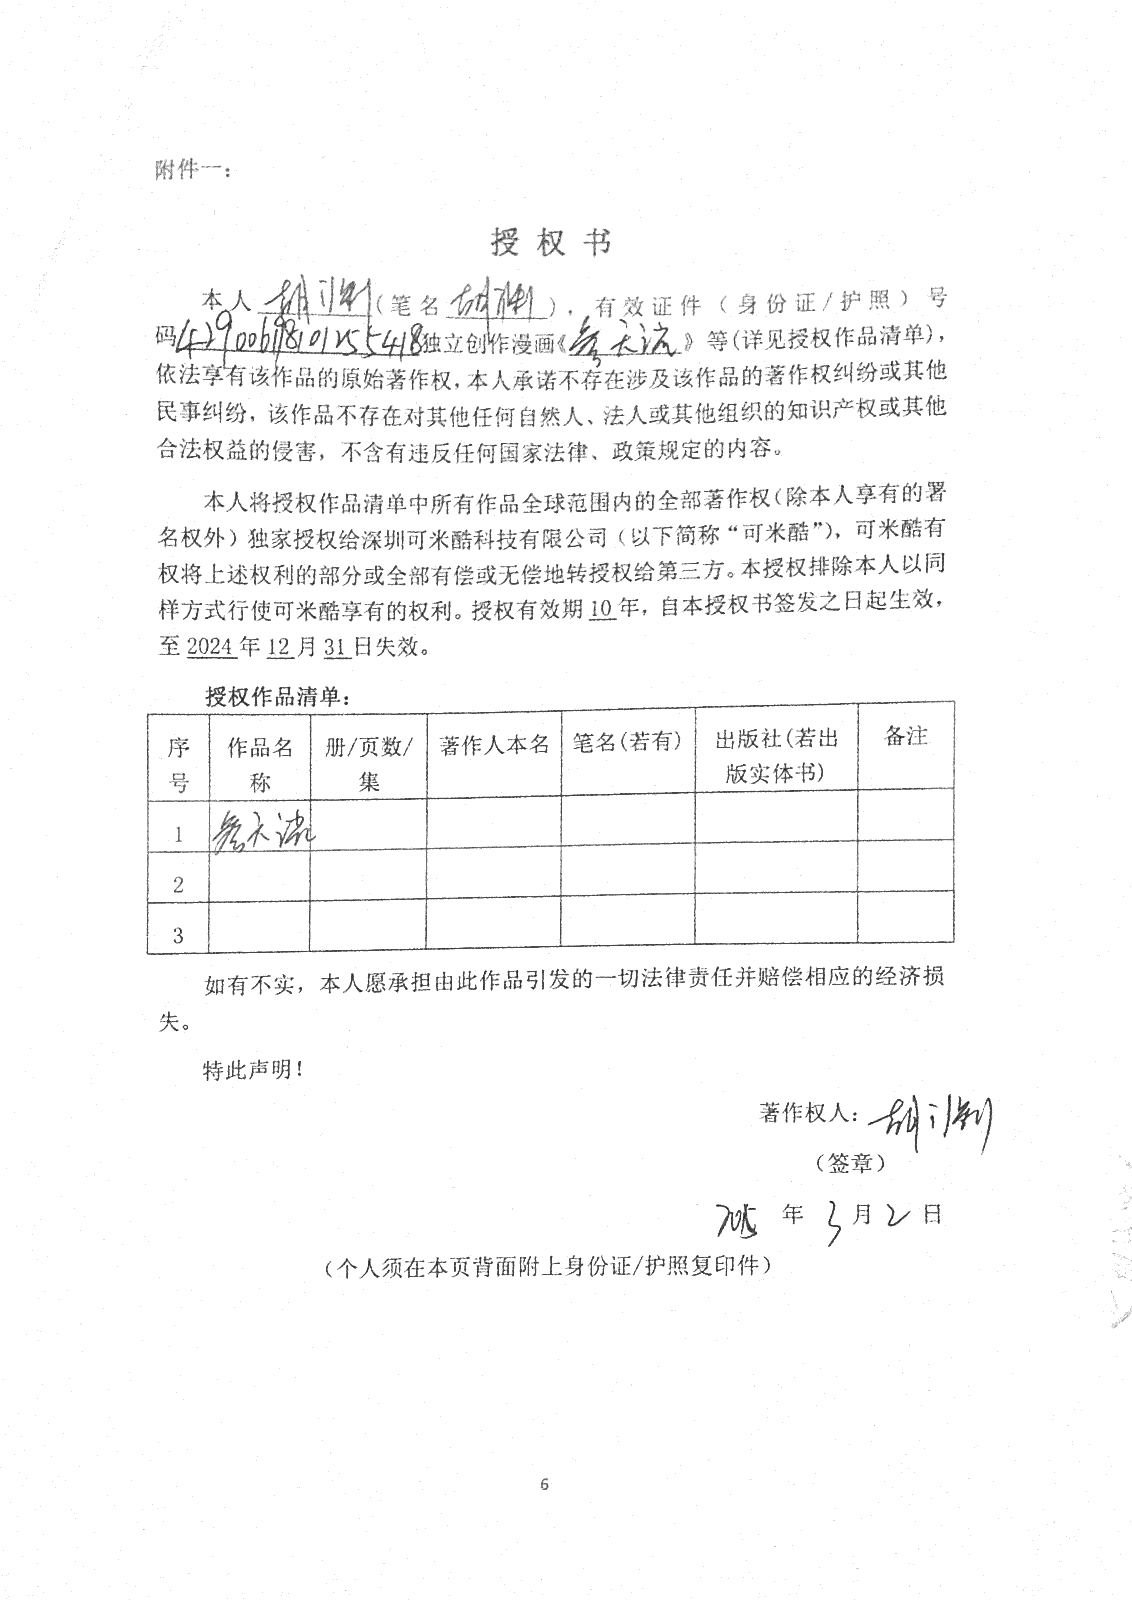 附件一：
授 权 书
本人 胡 (笔名 胡 )，有效证件（身份证/护照）号
码429006198101255418独立创作漫画《 》等(详见授权作品清单)，
依法享有该作品的原始著作权，本人承诺不存在涉及该作品的著作权纠纷或其他
民事纠纷，该作品不存在对其他任何自然人、法人或其他组织的知识产权或其他
合法权益的侵害，不含有违反任何国家法律、政策规定的内容。
本人将授权作品清单中所有作品全球范围内的全部著作权(除本人享有的署
名权外）独家授权给深圳可米酷科技有限公司（以下简称“可米酷”)，可米酷有
权将上述权利的部分或全部有偿或无偿地转授权给第三方。本授权排除本人以同
样方式行使可米酷享有的权利。授权有效期 10 年，自本授权书签发之日起生效，
至 2024 年 12 月 31 日失效。
授权作品清单：
序号 作品名称 册/页数/集 著作人本名 笔名(若有) 出版社(若出版实体书) 备注
1
2
3
如有不实，本人愿承担由此作品引发的一切法律责任并赔偿相应的经济损
失。
特此声明！
著作权人：胡
（签章）
2015 年 3 月 2 日
（个人须在本页背面附上身份证/护照复印件）
6